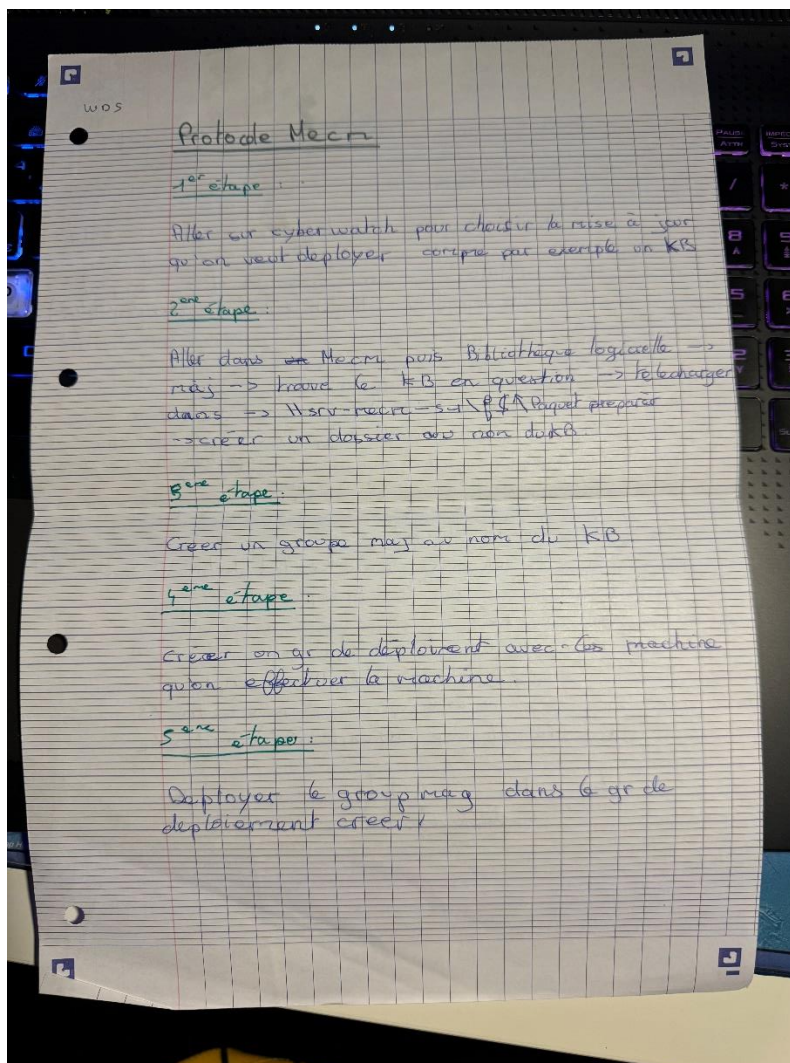 WDS
Protocole Mecm
1er étape :
Aller sur cyberwatch pour choisir la mise à jour
qu'on veut deployer comme par exemple un KB
2eme étape :
Aller dans Mecm puis Bibliothèque logicielle ->
màj -> trouve le KB en question -> télécharger
dans -> \\srv-mecm- Paquet preparer
-> créer un dossier au nom du KB.
3eme étape :
Creer un groupe maj au nom du KB
4eme étape :
Creer un gr de déploiment avec les machine
qu'on effectuer la machine.
5eme étapes :
Deployer le group maj dans le gr de
deploiement creer